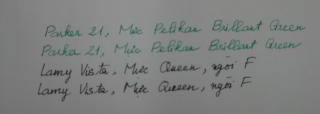 Parker 21, Mực Pelikan Brillant Green
Parker 21, Mực Pelikan Brillant Green
Lamy Vista, Mực Queen, ngòi F
Lamy Vista, Mực Queen, ngòi F